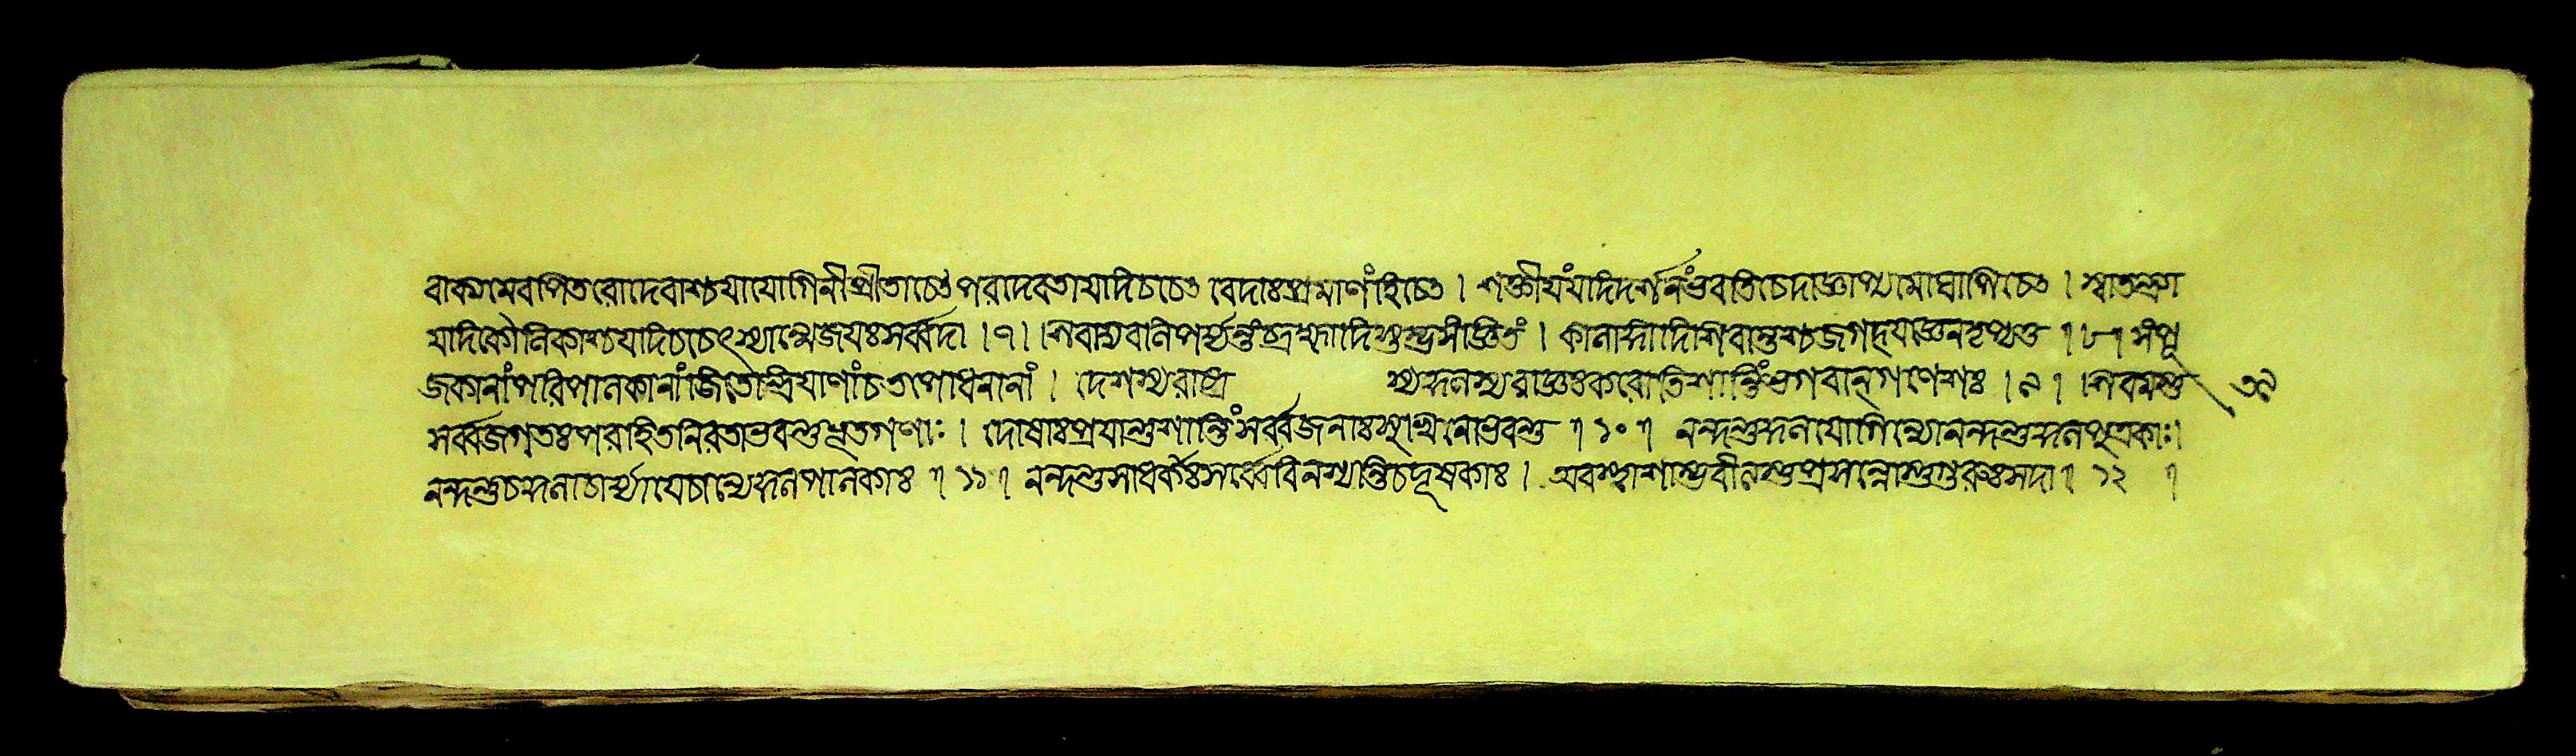 বাক্যমেবাপিতরোদেবাশ্চযাযোগিনীপ্রীতাচেৎপরাদেবতাযদিচচেৎ বেদাঃপ্রমাণংহিচেৎ । শাক্তীযংযদিদর্শনংভবতিচেদাজ্ঞাপ্যমোঘাপিচেৎ । স্বাতন্ত্র্যা
যদিকৌলিকাশ্চযদিচচেৎস্যান্মেজযঃসর্ব্বদা । ৭ । শিবাদ্যবনিপর্য্যন্তংব্রহ্মাদিস্তম্বসংজ্ঞিতং । কালাগ্ন্যাদিশিবান্তশ্চজগদ্যজ্ঞেনতৃপ্যতু । ৮ । সংপূ
জকানাংপরিপালকানাংজিতেন্দ্রিযাণাংচতপোধনানাং । দেশস্যরাষ্ট্র স্যকুলস্যরাজ্ঞঃকরোতিশান্তিংভগবান্গণেশঃ । ৯ । শিবমস্তু ৩৯
সর্ব্বজগতঃপরহিতনিরতাভবন্তুভূতগণাঃ । দোষাঃপ্রযান্তুশান্তিংসর্ব্বজনাঃসুখিনোভবন্তু । ১০ । নন্দন্তুকুলযোগিন্যোনন্দন্তুকুলপুত্রকাঃ ।
নন্দন্তুচকুলাচার্য্যাযেচান্যেকুলপালকাঃ । ১১ । নন্দন্তুসাধকাঃসর্ব্বেবিনশ্যন্তিচদূষকাঃ । অবস্থাশাম্ভবীনস্তুপ্রসন্নোস্তুগুরুঃসদা । ১২ ।